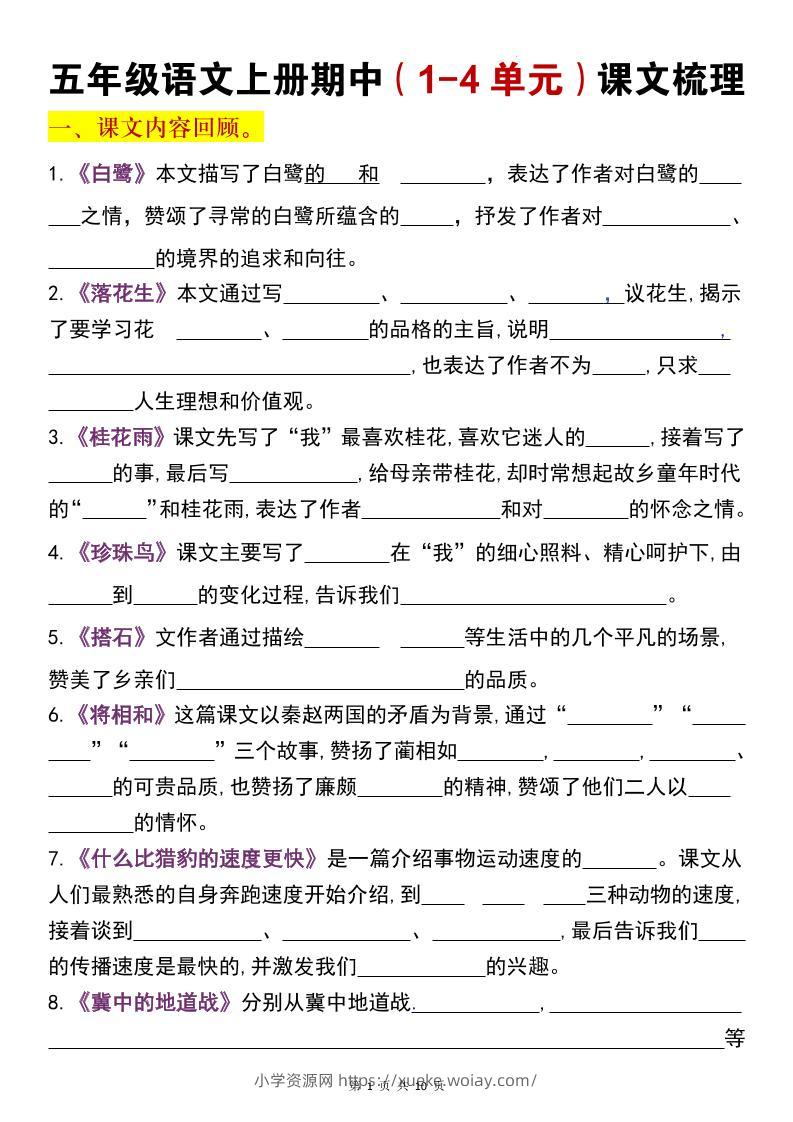 五年级语文上册期中（1-4 单元）课文梳理
一、课文内容回顾。
1.《白鹭》本文描写了白鹭的___和 ________，表达了作者对白鹭的____
___之情，赞颂了寻常的白鹭所蕴含的_____，抒发了作者对____________、
__________的境界的追求和向往。
2.《落花生》本文通过写_________、__________、_________，议花生,揭示
了要学习花 ________、________的品格的主旨,说明________________，
__________________________________,也表达了作者不为_____,只求___
________人生理想和价值观。
3.《桂花雨》课文先写了“我”最喜欢桂花,喜欢它迷人的______,接着写了
______的事,最后写____________,给母亲带桂花,却时常想起故乡童年时代
的“______”和桂花雨,表达了作者_____________和对________的怀念之情。
4.《珍珠鸟》课文主要写了________在“我”的细心照料、精心呵护下,由
______到______的变化过程,告诉我们_________________________。
5.《搭石》文作者通过描绘_______ ______等生活中的几个平凡的场景,
赞美了乡亲们___________________________的品质。
6.《将相和》这篇课文以秦赵两国的矛盾为背景,通过“________”“_____
____”“________”三个故事,赞扬了蔺相如________,________,________、
______的可贵品质,也赞扬了廉颇________的精神,赞颂了他们二人以____
________的情怀。
7.《什么比猎豹的速度更快》是一篇介绍事物运动速度的_______。课文从
人们最熟悉的自身奔跑速度开始介绍,到____ ____ ____三种动物的速度,
接着谈到____________、____________、____________,最后告诉我们____
的传播速度是最快的,并激发我们____________的兴趣。
8.《冀中的地道战》分别从冀中地道战.____________,__________________
________________________________________________________________等
小学资源网 https://xueke.woiay.com/
第 1 页 共 10 页